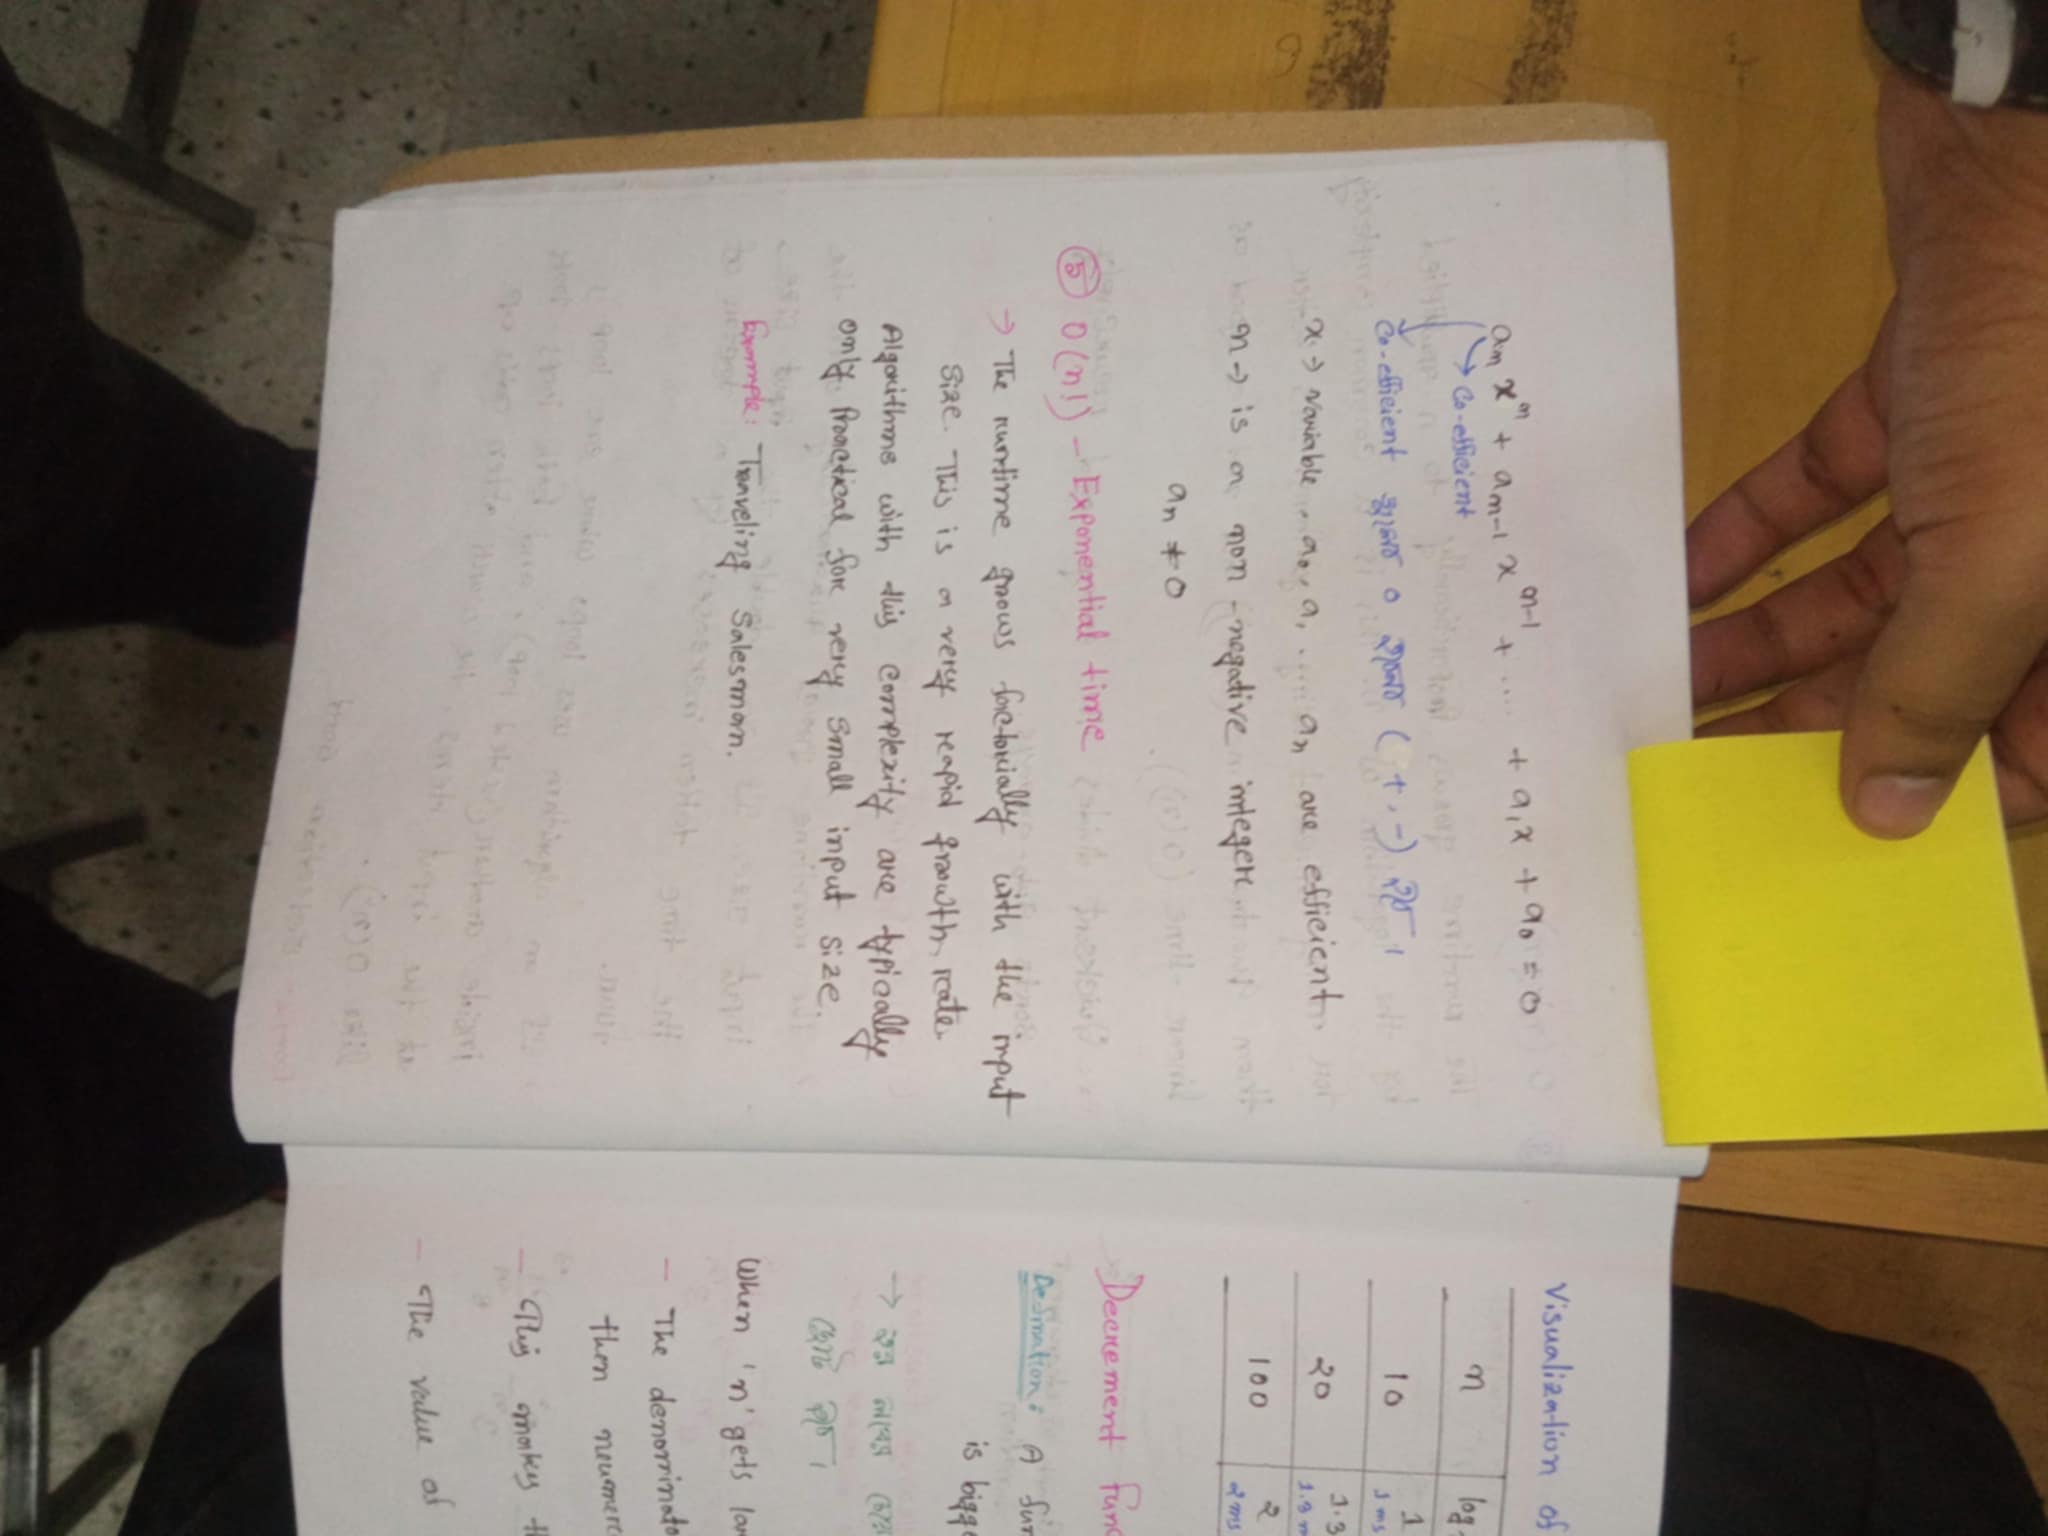 aₙxⁿ + aₙ₋₁xⁿ⁻¹ + .... + a₁x + a₀ = 0
Co-efficient
Co-efficient 0 (+, -) হবে।
x → variable, a₀, a₁ ... aₙ are efficient.
n → is a non-negative integer
aₙ ≠ 0
⑤ O(n!) - Exponential time
→ The runtime grows factorially with the input
size. This is a very rapid growth rate.
Algorithms with this complexity are typically
only Practical for very small input size.
Example: Traveling Salesman.
Visualization of
n log
10 1
1 ms
20 1.3
1.3 m
100 2
2 ms
Decrement func
Defination: A fun
is bigge
→ হর লবের চেয়ে
ছোট হবে।
When 'n' gets lar
- The denominato
then neumer
- This makes th
- The value of